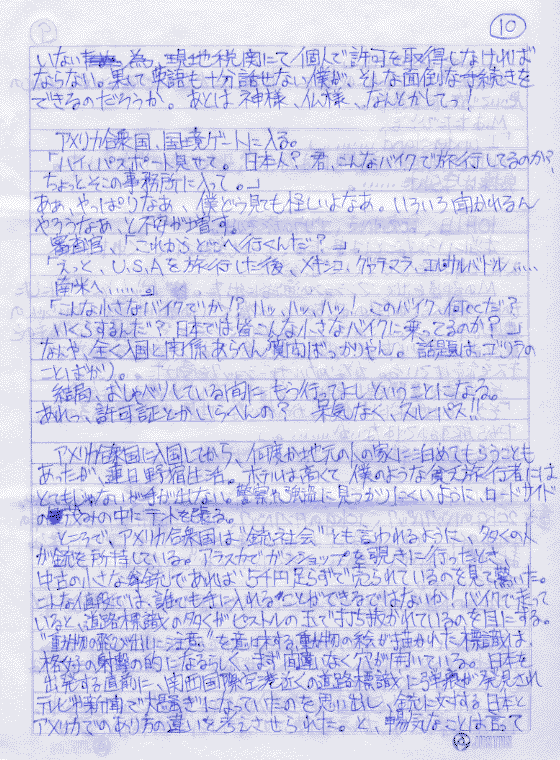 10
いない為、現地税関にて個人で許可を取得しなければ
ならない。果して英語も十分話せない僕が、そんな面倒な手続きを
できるのだろうか。あとは神様、仏様、なんとかしてっ
アメリカ合衆国、国境ゲートに入る。
「ハイ、パスポート見せて。日本人?君、こんなバイクで旅行してるのか?
ちょっとそこの事務所に入って。」
ああ、やっぱりなあ、僕どう見ても怪しいよなあ。いろいろ聞かれるん
やろうなあ、と不安が増す。
審査官、「これから、どこへ行くんだ?」
「えっと、U.S.Aを旅行した後、メキシコ、グァテマラ、エルサルバドル……
南米へ……。」
「こんな小さなバイクでか!?ハッ、ハッ、ハッ!このバイク、何ccだ?
いくらするんだ?日本では皆こんな小さなバイクに乗ってるのか?」
なんや、全く入国と関係あらへん質問ばっかりやん。話題は、ゴリラの
ことばかり。
結局、おしゃべりしている間に、もう行ってよしということになる。
あれっ、許可証とかいらへんの?呆気なく、スルーパス!!
アメリカ合衆国に入国してから、何度か地元の人の家に泊めてもらうことも
あったが、連日野宿生活。ホテルは高くて、僕のような貧乏旅行者には
とてもじゃないが手が出ない。警察や強盗に見つかりにくいように、ロードサイド
の茂みの中にテントを張る。
ところで、アメリカ合衆国は"銃社会"とも言われるように、多くの人
が銃を所持している。アラスカでガンショップを覗きに行ったとき、
中古の小さな銃であれば、5千円足らずで売られているのを見て驚いた。
こんな値段では、誰でも手に入れることができるではないか!バイクで走って
いると、道路標識の多くがピストルの玉で打ち抜かれているのを目にする。
"動物の飛び出しに注意"を意味する動物の絵が描かれた標識は、
格好の射撃の的になるらしく、まず間違いなく穴が開いている。日本を
出発する直前に、関西国際空港近くの道路標識に弾痕が発見され
テレビや新聞で大騒ぎになっていたのを思い出し、銃に対する日本と
アメリカでのあり方の違いを考えさせられた。と、暢気なことは言って